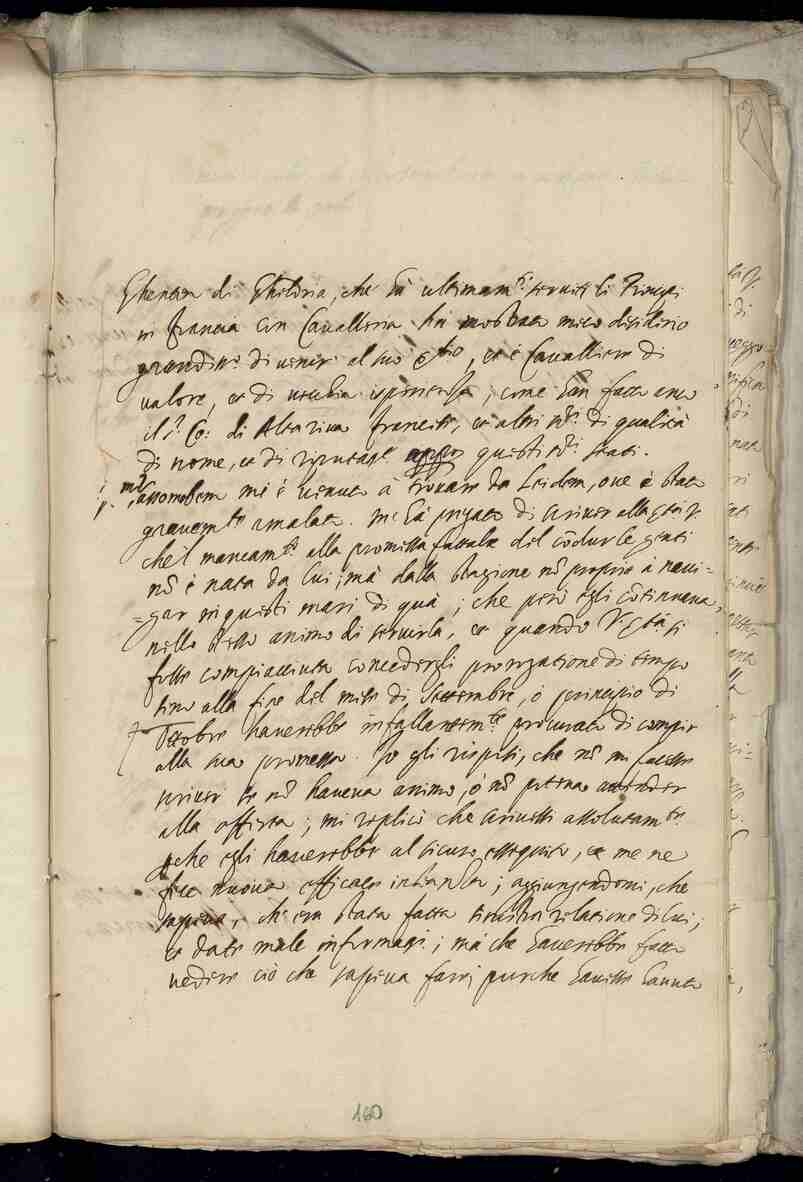 Ghenth di Gheldria, che hà ultimamte. servito li Principi
in francia con Cavalleria hà mostrato meco desiderio
grandissmo. di venir al suo servitio, et è Cavalliero di
valore, et di vecchia esperienza; come han fatto anco
il Sr. Co: di Altariva francese, et altri Sri. di qualità
di nome, et di riputatne. appo questi Sri. stati.
mi è venuto à trovare da Leidem, ove è stato
gravemte. amalato. Mi hà pregato di scriver alla Stà. V.
che'l mancamto. alla promessa fattale del cõdur le genti
nõ è nata da lui; mà dalla stagione nõ propria à navi=
=gar in questi mari di quà; che però egli cõtinuava
nello stesso animo di servirla, et quando V. Stà. si
fosse compiacciuta concedergli prorogatione di tempo
sino alla fine del mese di Settembre, ò principio di
Ottobre haverebbe infallantemte. procurato di compir
alla sua promessa. Io gli risposi, che nõ mi facesse
scriver se nõ haveva animo, ò nõ poteva attender
alla offerta; mi replicò che scrivessi assolutamte.
che egli haverebbe al sicuro esseguito, et me ne
fece nuova efficace instanza; aggiungendomi, che
sapeva, ch'era stata fatta sinistra relatione di lui;
et date male informani.; mà che haverebbe fatto
vedere ciò che sapeva fare, purche havesse havuto
160